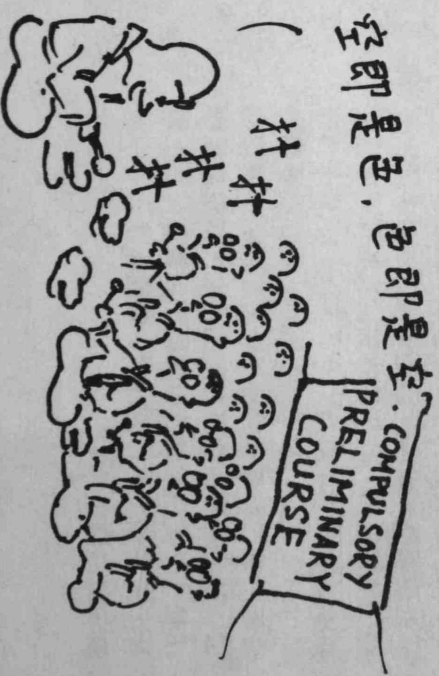 空即是色．色即是空．
扑
扑
扑
扑
COMPULSORY
PRELIMINARY
COURSE